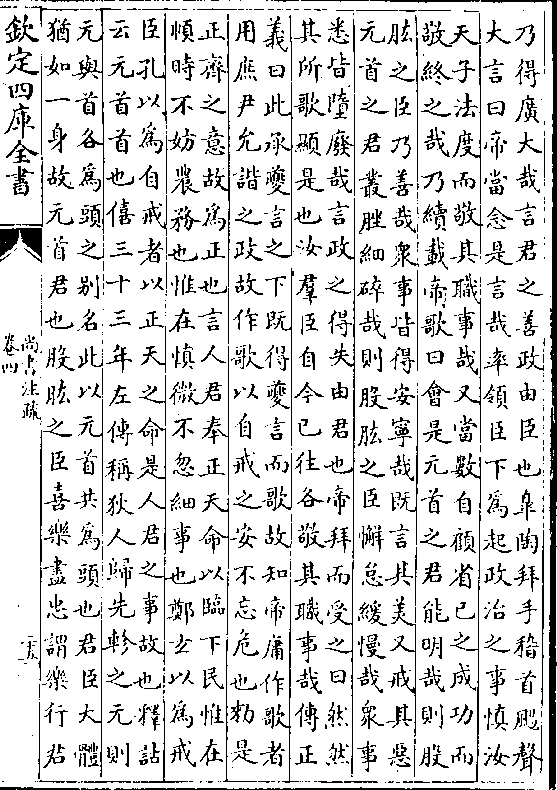 乃得廣大哉言君之善政由臣也臯陶拜手稽首颺聲
大言曰帝當念是言哉率領臣下為起政治之事慎汝
天子法度而敬其職事哉又當數自顧省已之成功而
敬終之哉乃續載帝歌曰會是元首之君能明哉則股
肱之臣乃善哉衆事皆得安寧哉既言其美又戒其惡
元首之君叢脞細碎哉則股肱之臣懈怠緩慢哉衆事
悉皆隳廢哉言政之得失由君也帝拜而受之曰然然
其所歌顯是也汝羣臣自今已往各敬其職事哉傳正
義曰此承夔言之下既得夔言而歌故知帝庸作歌者
用庶尹允諧之政故作歌以自戒之安不忘危也勑是
正齊之意故為正也言人君奉正天命以臨下民惟在
順時不妨農務也惟在慎微不忽細事也鄭玄以為戒
臣孔以為自戒者以正天之命是人君之事故也釋詁
云元首首也僖三十三年左傳稱狄人歸先軫之元則
元與首各為頭之別名此以元首共為頭也君臣大體
猶如一身故元首君也股肱之臣喜樂盡忠謂樂行君
欽定四庫全書
尚書注疏
卷四
二五